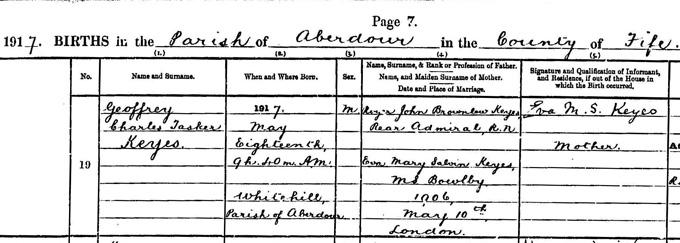 Page 7.
1917. BIRTHS in the Parish of Aberdour in the County of Fife.
(1.) (2.) (3.) (4.) (5.)
No. Name and Surname. When and Where Born. Sex. Name, Surname, & Rank or Profession of Father. Name, and Maiden Surname of Mother. Date and Place of Marriage. Signature and Qualification of Informant, and Residence, if out of the House in which the Birth occurred.
19
Geoffrey
Charles Tasker
Keyes.
1917.
May
Eighteenth,
9h. 40m. A.M.
Whitehill,
Parish of Aberdour
M.
John Brownlow Keyes,
Rear Admiral, R.N.
Eva Mary Salvin Keyes,
MS Bowlby
1906,
May 10th,
London.
Eva M. S. Keyes
Mother.